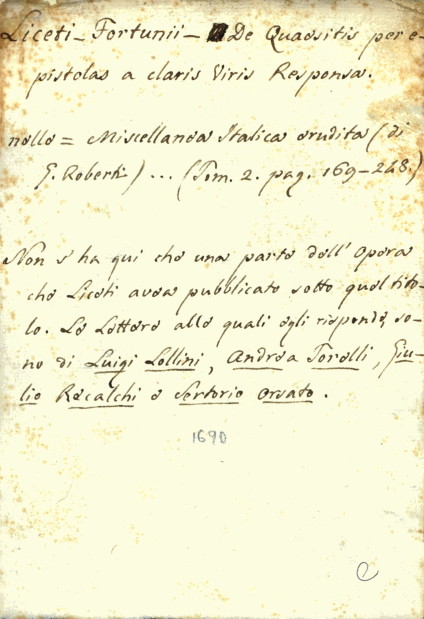 Liceti - Fortunii - De Quaesitis per e-
pistolas a claris Viris Responsa.
nelle = Miscellanea Italica erudita (di
G. Roberti) ... (Tom. 2. pag. 169-248.)
Non s'ha qui che una parte dell'Opera
che Liceti avea pubblicato sotto quel tito-
lo. Le Lettere alle quali egli risponde, so-
no di Luigi Lollini, Andrea Torelli, Giu-
lio Recalchi e Sertorio Orsato.
1690